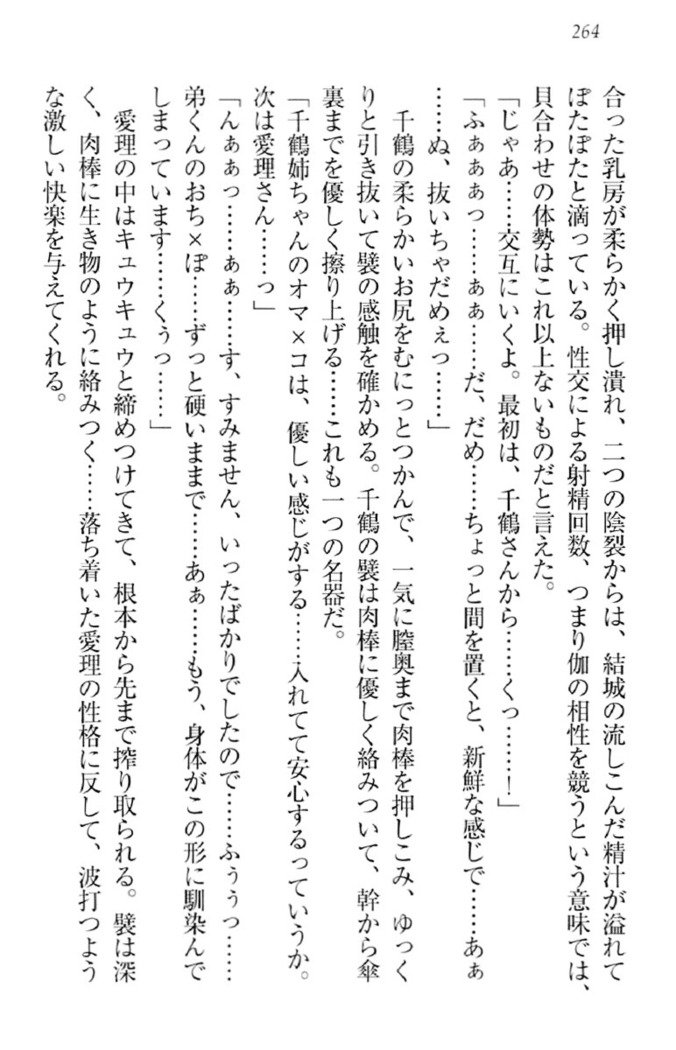 264
合った乳房が柔らかく押し潰れ、二つの陰裂からは、結城の流しこんだ精汁が溢れて
ぽたぽたと滴っている。性交による射精回数、つまり伽の相性を競うという意味では、
貝合わせの体勢はこれ以上ないものだと言えた。
「じゃあ……交互にいくよ。最初は、千鶴さんから……くっ……！」
「ふぁぁぁっ……ぁぁ……だ、だめ……ちょっと間を置くと、新鮮な感じで……あぁ
……ぬ、抜いちゃだめぇっ……」
千鶴の柔らかいお尻をむにっとつかんで、一気に膣奥まで肉棒を押しこみ、ゆっく
りと引き抜いて襞の感触を確かめる。千鶴の襞は肉棒に優しく絡みついて、幹から傘
裏までを優しく擦り上げる……これも一つの名器だ。
「千鶴姉ちゃんのオマ×コは、優しい感じがする……入れてて安心するっていうか。
次は愛理さん……っ」
「んぁぁっ……ぁぁ……す、すみません、いったばかりでしたので……ふぅぅっ……
弟くんのおち×ぽ……ずっと硬いままで……あぁ……もう、身体がこの形に馴染んで
しまっています……くぅっ……」
愛理の中はキュウキュウと締めつけてきて、根本から先まで搾り取られる。襞は深
く、肉棒に生き物のように絡みつく……落ち着いた愛理の性格に反して、波打つよう
な激しい快楽を与えてくれる。